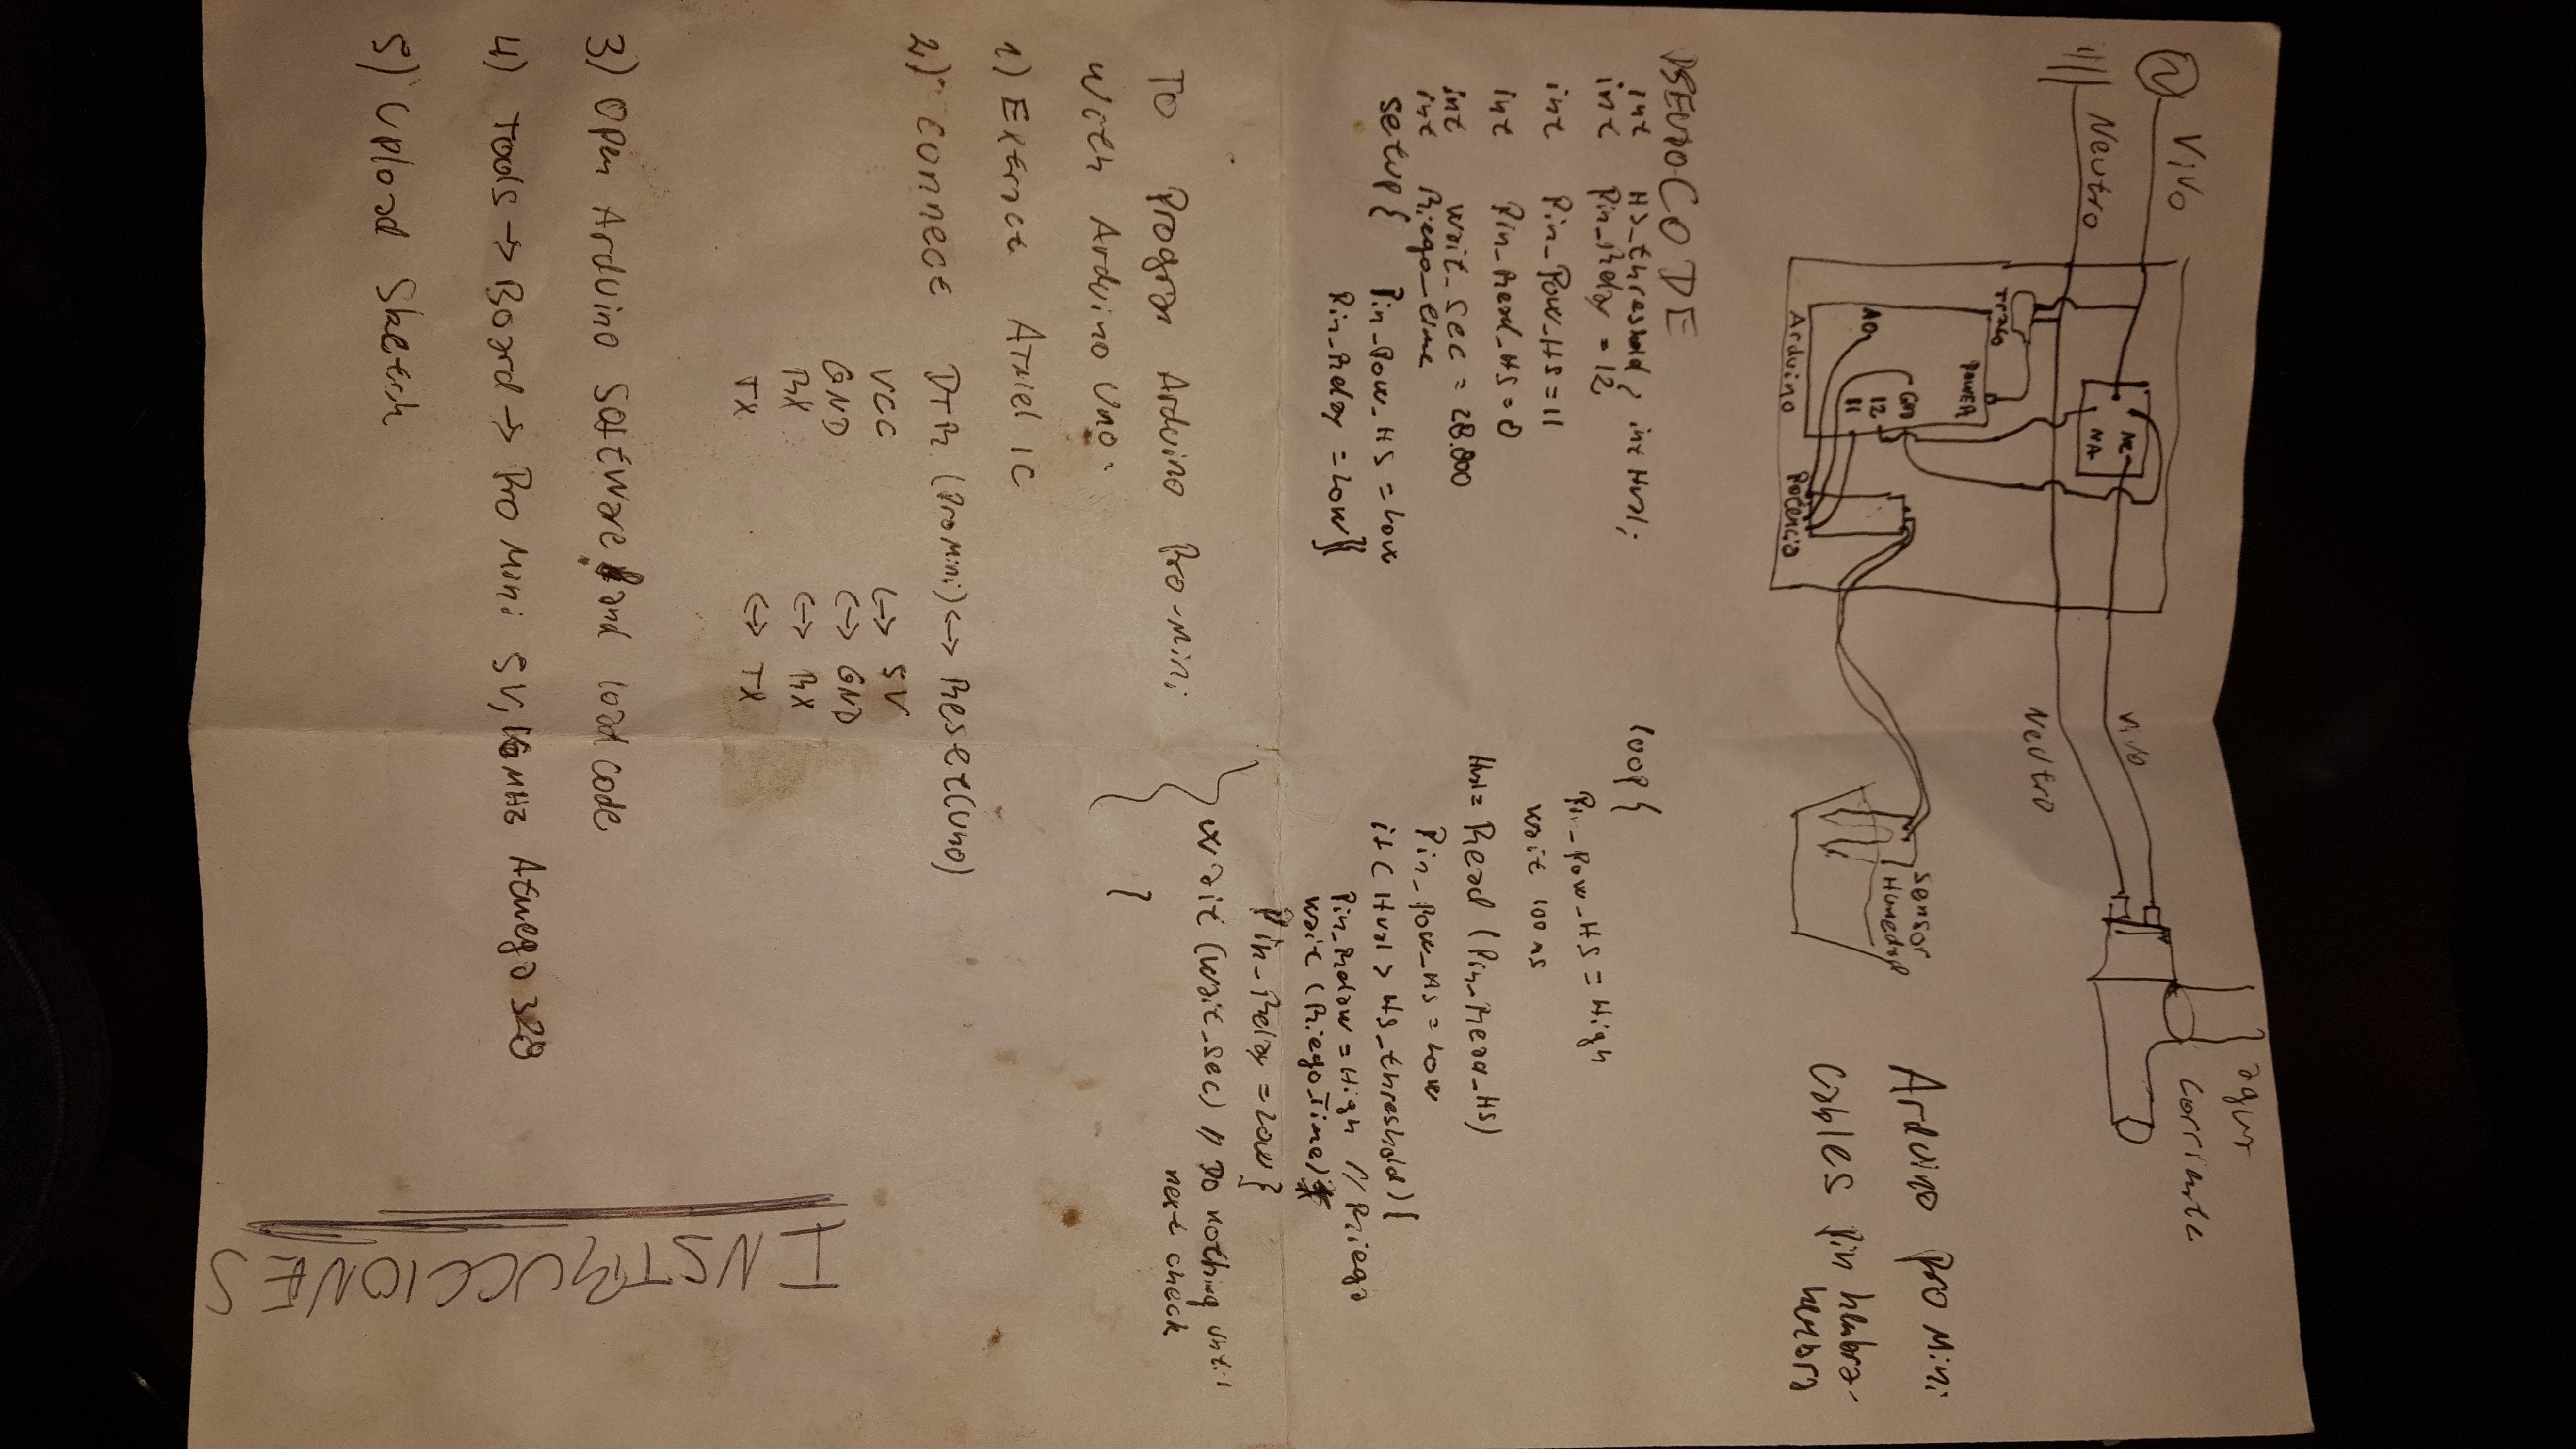 Vivo
Neutro
Trafo
Power
NC
NA
A0
GND
12
11
Arduino
Potencia
Vivo
Neutro
Sensor
Humedad
agua
Corriente
Arduino Pro Mini
Cables Pin hembra-
hembra
PSEUDOCODE
int HS_threshold; int Hval;
int Pin_Relay = 12
int Pin_Pow_HS = 11
int Pin_Read_HS = 0
int Wait_Sec = 28.800
int Riego_time
Setup{ Pin_Pow_HS = Low
Pin_Relay = Low}
loop{
Pin_Pow_HS = High
wait 100 ms
Hval = Read (Pin_Read_HS)
Pin_Pow_HS = Low
if (Hval > HS_threshold){
Pin_Relay = High // Riego
wait (Riego_Time)
Pin_Relay = Low}
wait (Wait_Sec) // Do nothing until
next check
}
To Program Arduino Pro-Mini
With Arduino Uno:
1) Extract Atmel IC
2) Connect DTR (Pro Mini) <-> Reset (Uno)
VCC <-> 5V
GND <-> GND
RX <-> RX
TX <-> TX
3) Open Arduino Software and load code
4) Tools -> Board -> Pro Mini 5V, 16MHz Atmega 328
5) Upload Sketch
INSTRUCCIONES